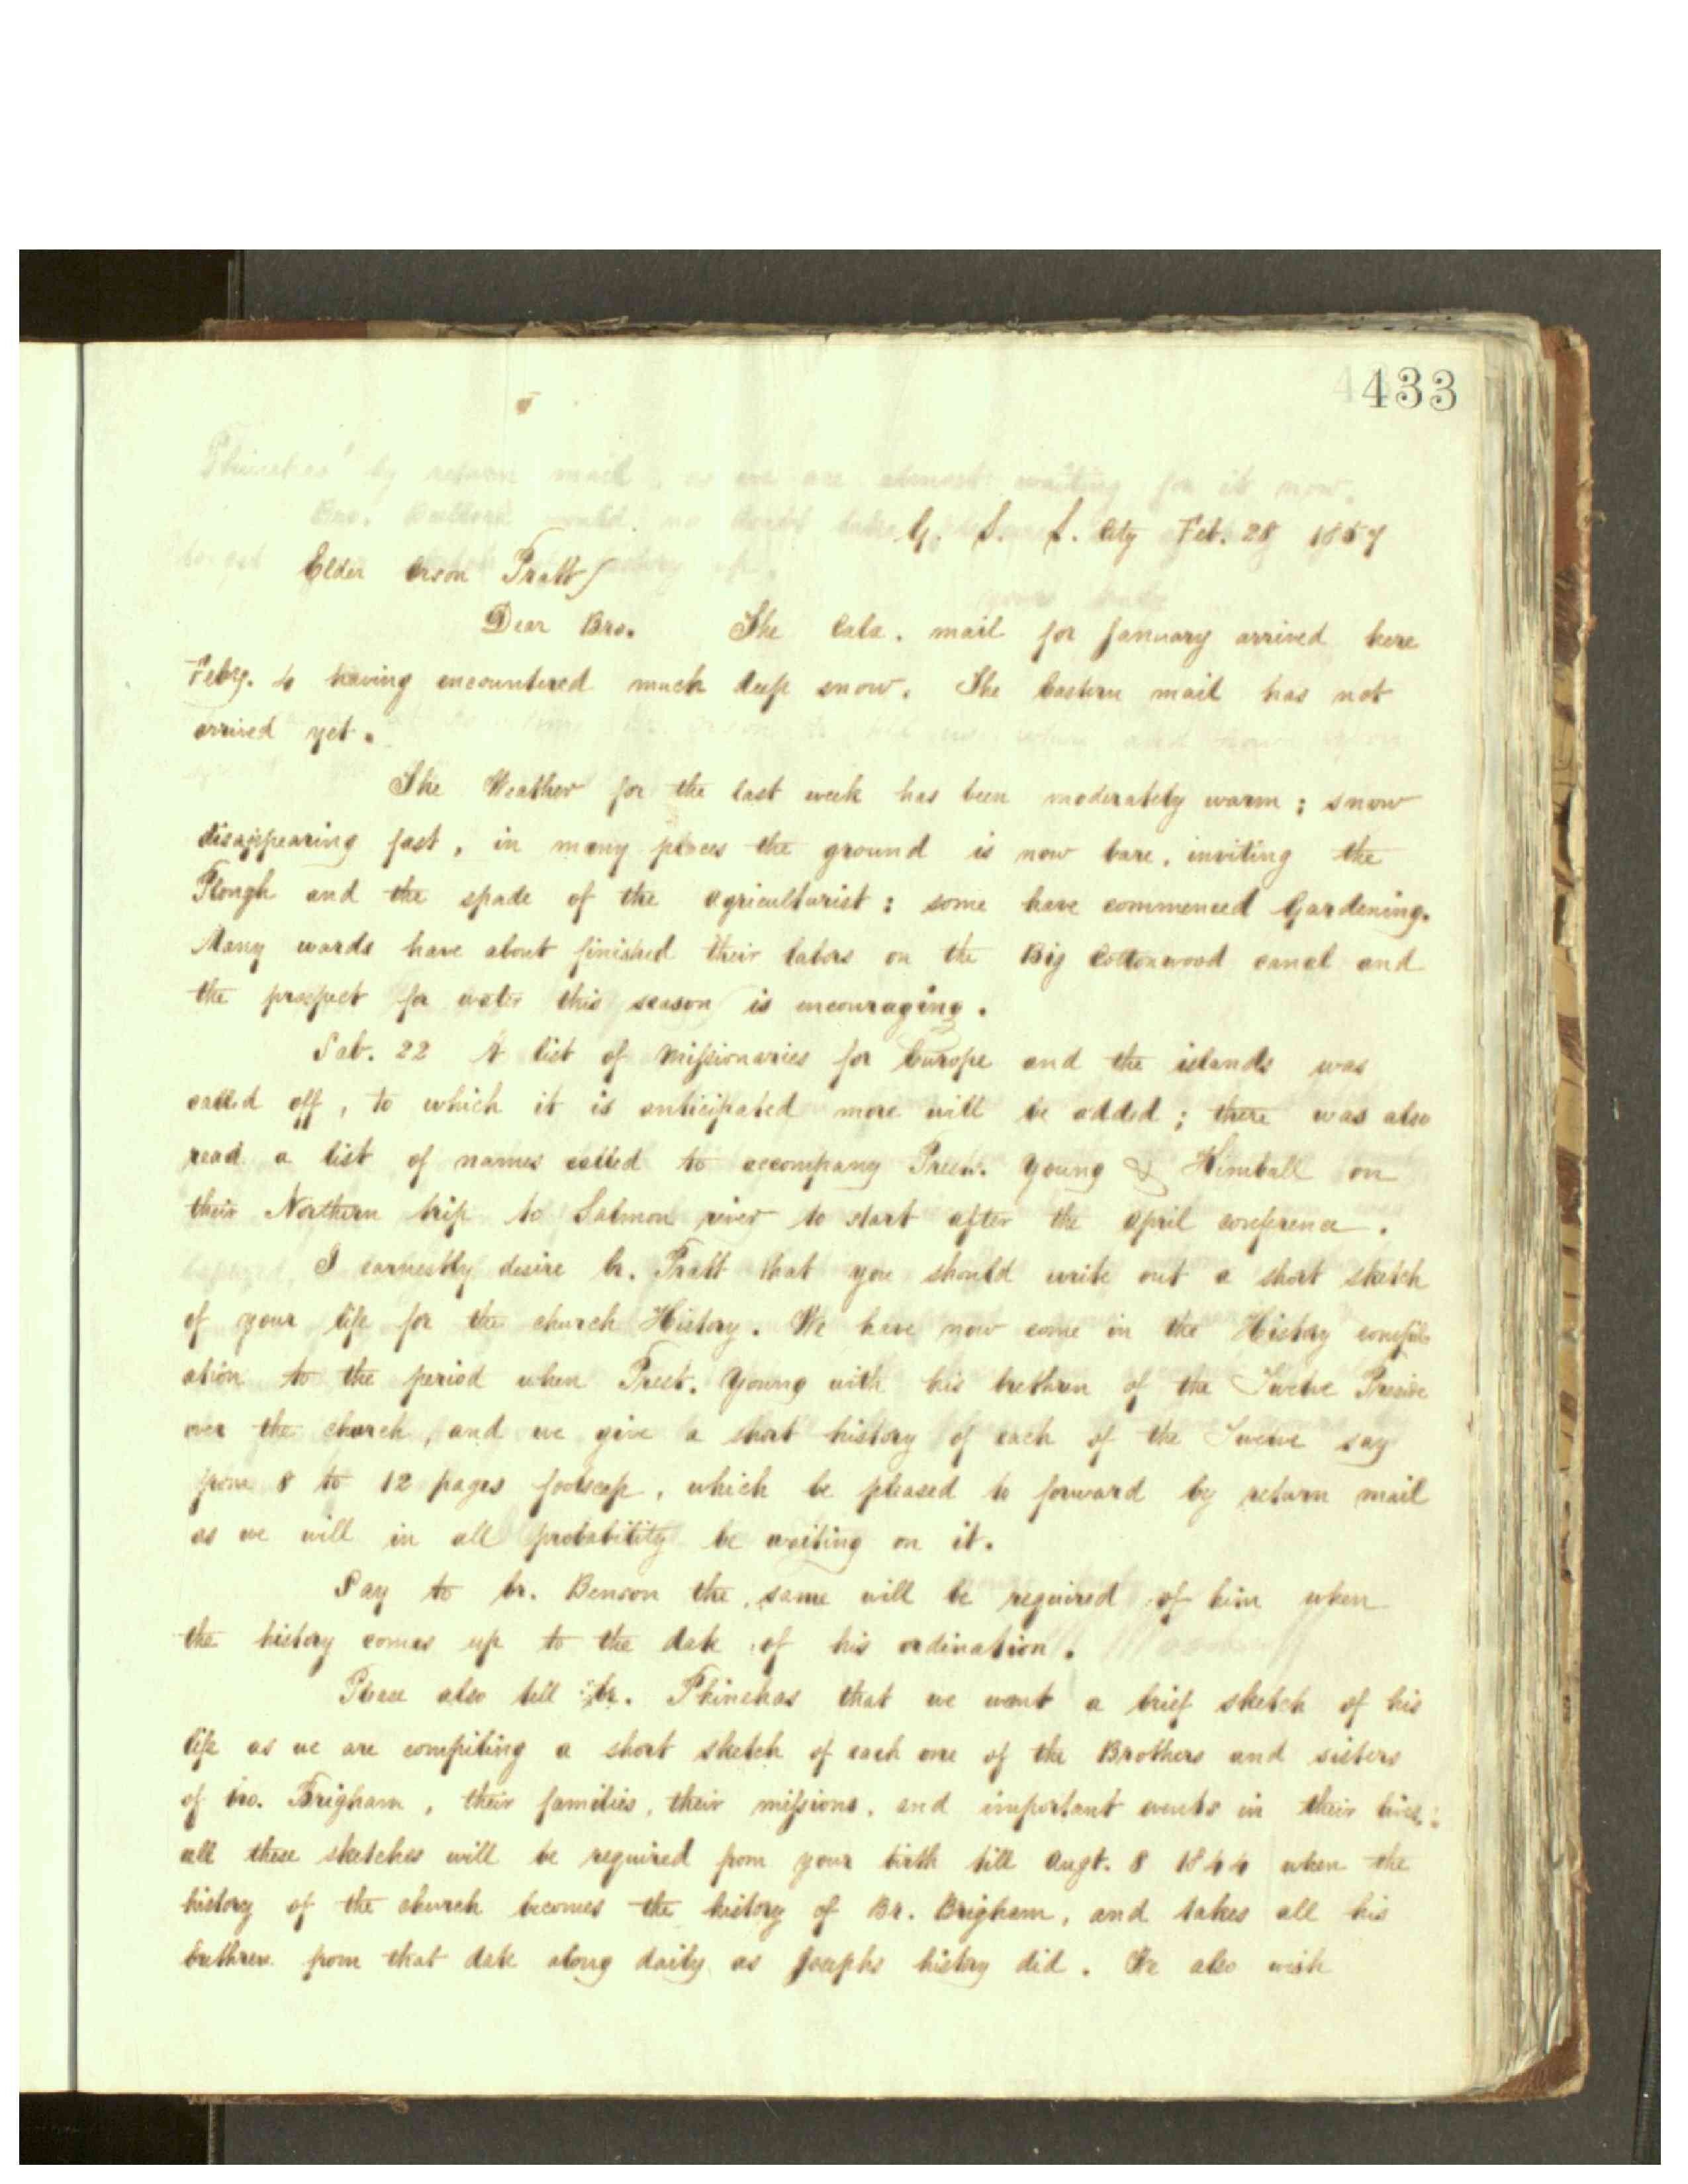 433
G. S. L. City Feb. 28 1857
Elder Orson Pratt
Dear Bro. The Cala. mail for January arrived here
Feby. 4 having encountered much deep snow. The Eastern mail has not
arrived yet.
The Weather for the last week has been moderately warm; snow
disappearing fast, in many places the ground is now bare, inviting the
Plough and the spade of the agriculturist: some have commenced Gardening.
Many wards have about finished their labors on the Big Cottonwood canal and
the prospect for water this season is encouraging.
Sab. 22 A list of Missionaries for Europe and the islands was
called off, to which it is anticipated more will be added; there was also
read a list of names called to accompany Prests. Young & Kimball on
their Northern trip to Salmon river to start after the April conference.
I earnestly desire br. Pratt that you should write out a short sketch
of your life for the church History. We have now come in the History compil
ation to the period when Prest. Young with his brethren of the Twelve Preside
over the church, and we give a short history of each of the Twelve say
from 8 to 12 pages foolscap, which be pleased to forward by return mail
as we will in all probability be waiting on it.
Say to br. Benson the same will be required of him when
the history comes up to the date of his ordination.
Please also tell br. Phinehas that we want a brief sketch of his
life as we are compiling a short sketch of each one of the Brothers and sisters
of bro. Brigham, their families, their missions, and important events in their lives:
all these sketches will be required from your birth till Augt. 8 1844 when the
history of the church becomes the history of Br. Brigham, and takes all his
brethren from that date along daily as Josephs history did. We also wish